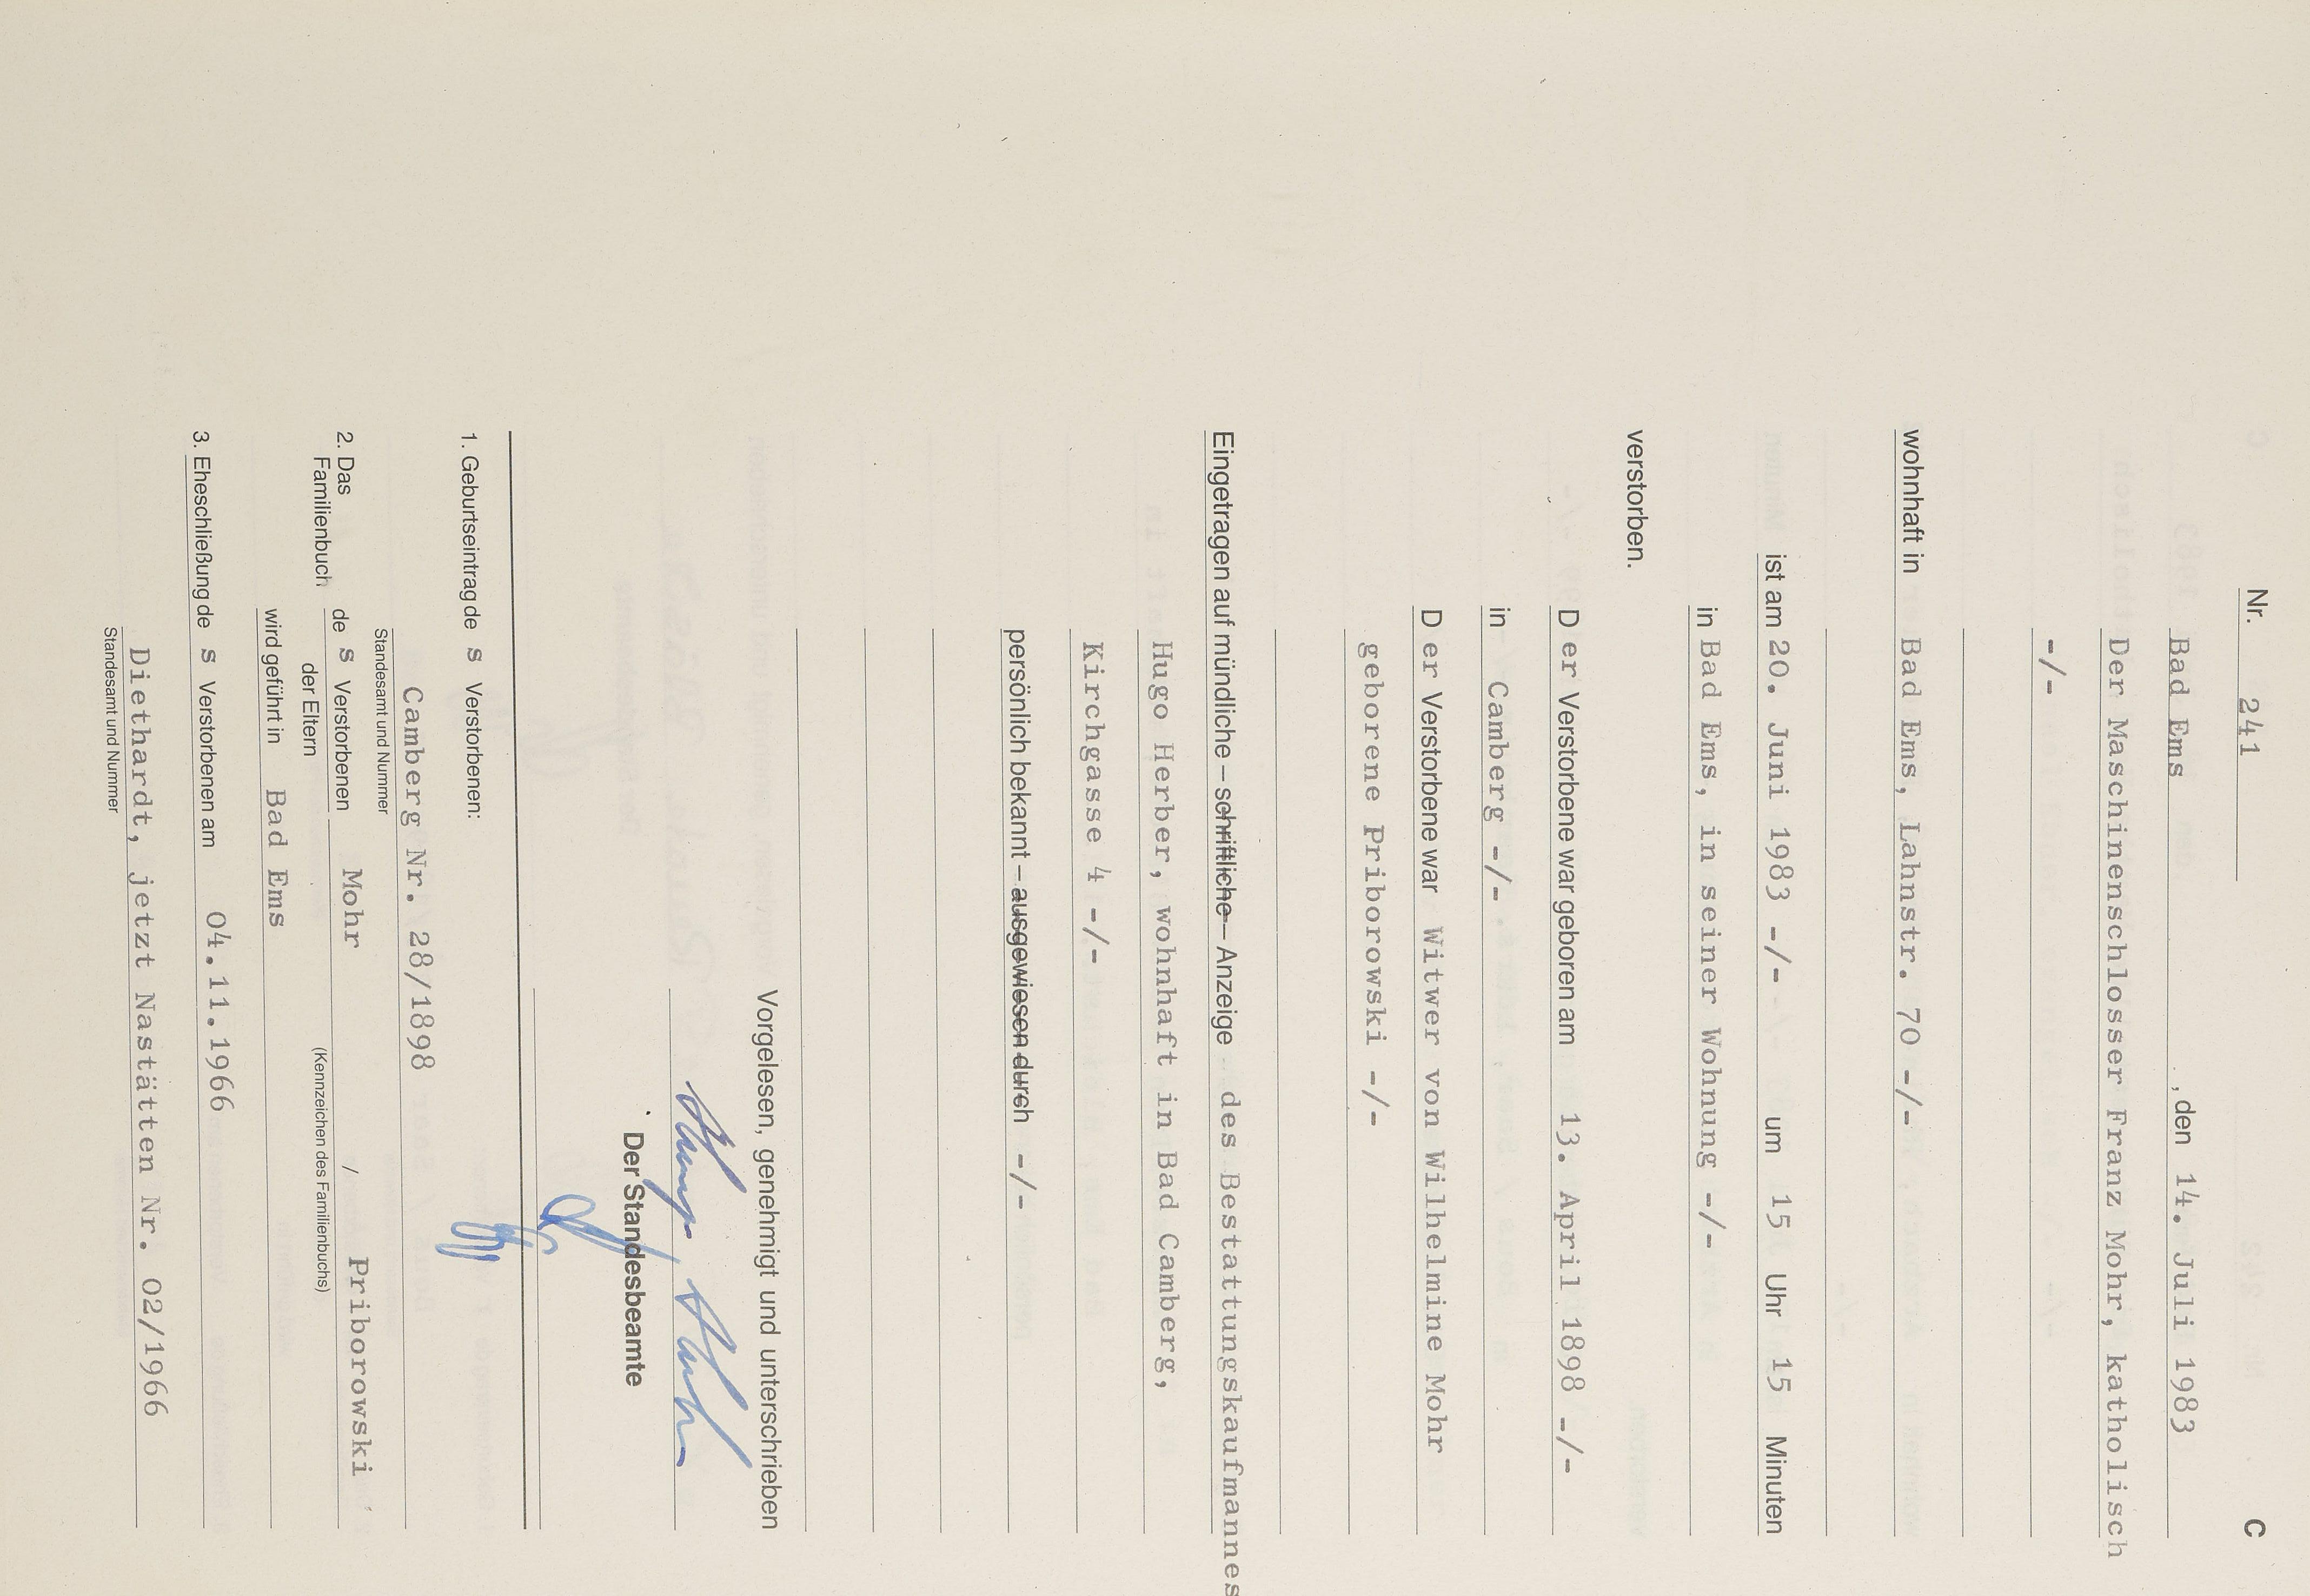 C
Nr. 241
Bad Ems , den 14. Juli 1983
Der Maschinenschlosser Franz Mohr, katholisch
-/-
wohnhaft in Bad Ems, Lahnstr. 70 -/-
ist am 20. Juni 1983 -/- um 15 Uhr 15 Minuten
in Bad Ems, in seiner Wohnung -/-
verstorben.
D er Verstorbene war geboren am 13. April 1898 -/-
in Camberg -/-
D er Verstorbene war Witwer von Wilhelmine Mohr
geborene Priborowski -/-
Eingetragen auf mündliche – schriftliche – Anzeige des Bestattungskaufmannes
Hugo Herber, wohnhaft in Bad Camberg,
Kirchgasse 4 -/-
persönlich bekannt – ausgewiesen durch -/-
Vorgelesen, genehmigt und unterschrieben
Der Standesbeamte
1. Geburtseintrag de s Verstorbenen:
Camberg Nr. 28/1898
Standesamt und Nummer
2. Das Familienbuch de s Verstorbenen Mohr / Priborowski
der Eltern (Kennzeichen des Familienbuchs)
wird geführt in Bad Ems
3. Eheschließung de s Verstorbenen am 04.11.1966
Diethardt, jetzt Nastätten Nr. 02/1966
Standesamt und Nummer